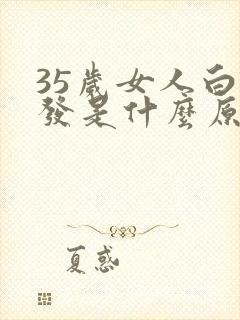 35歲女人白
發是什麼原
夏惑